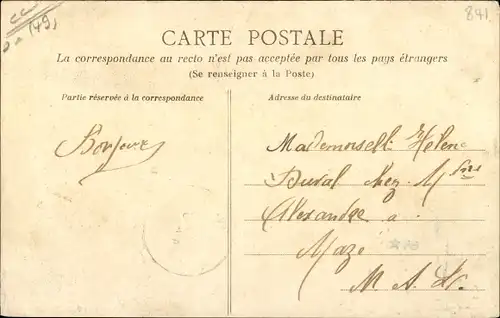 841
CARTE POSTALE
La correspondance au recto n'est pas acceptée par tous les pays étrangers
(Se renseigner à la Poste)
Partie réservée à la correspondance
Adresse du destinataire
Bonjour
Mademoiselle Hélène
Duval chez Mme
Alexandre a
Mazé
M. & L.